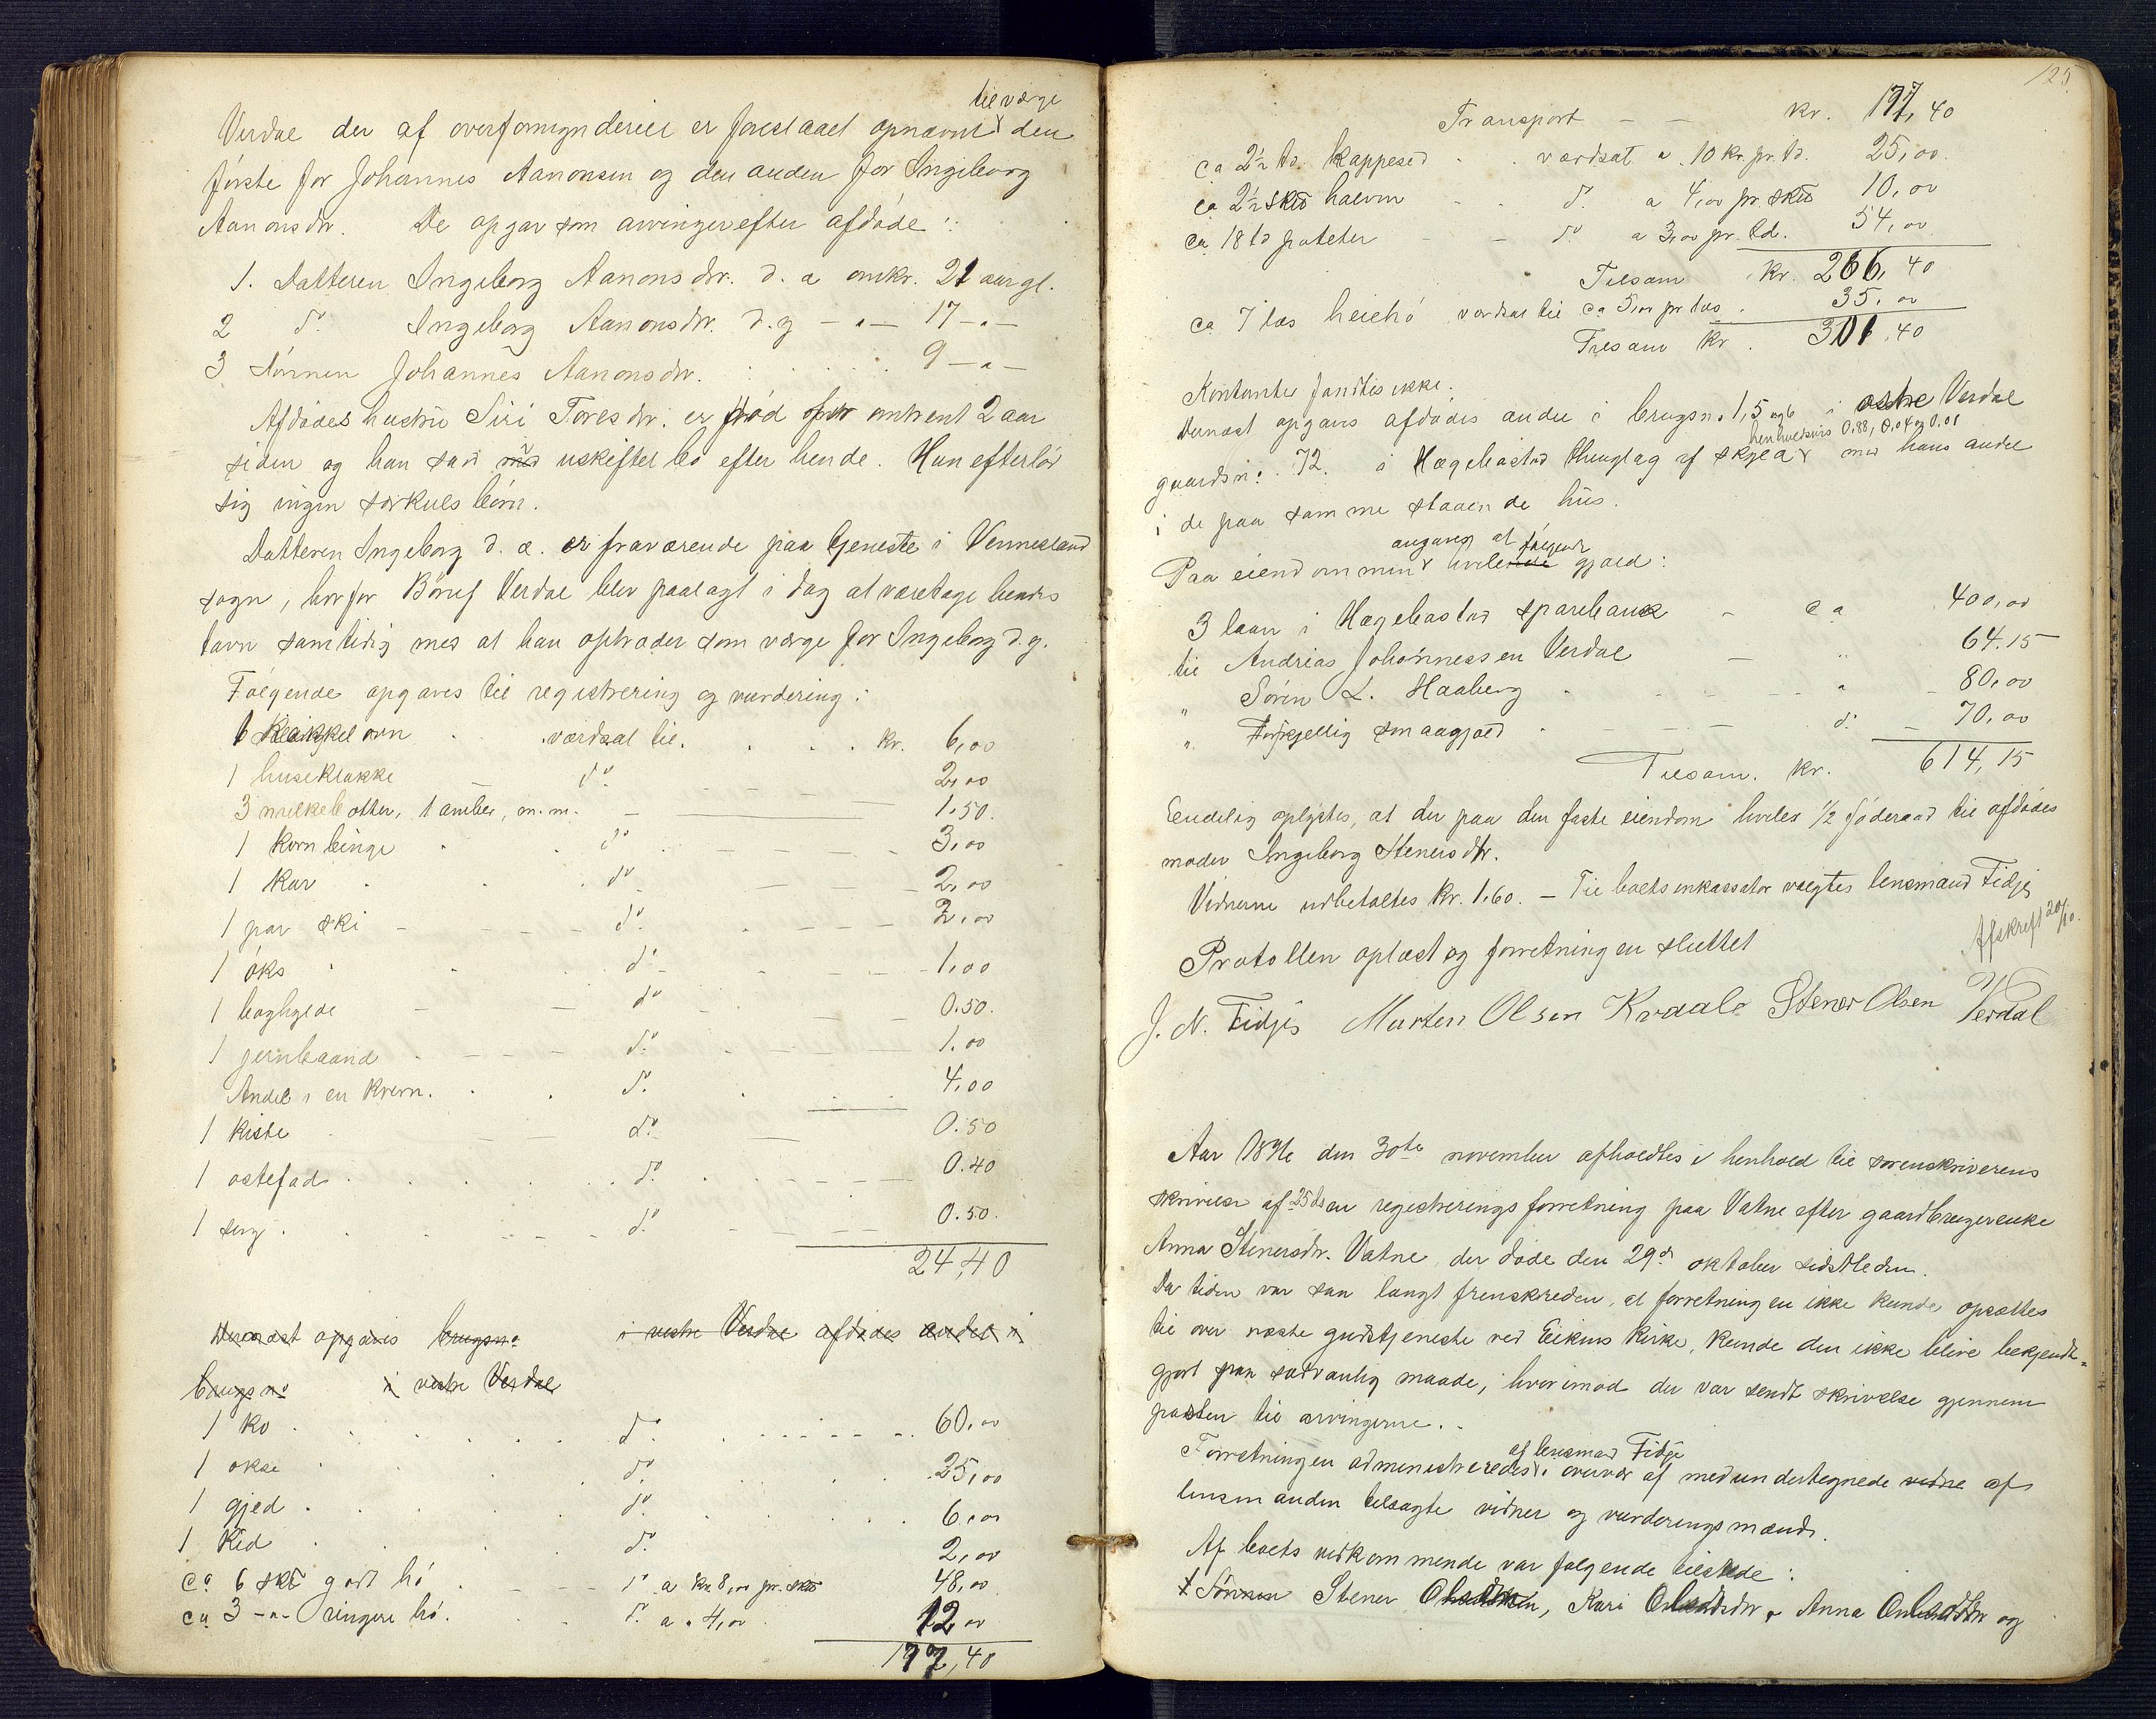 til værge
Verdal der af overformynderiet er foreslaaet opnævnt den
første for Johannes Aanonsen og den anden for Ingeborg
Aanonsdtr. De opgav som arvinger efter afdøde:
1. Datteren Ingeborg Aanonsdtr. d. æ omkr. 21 aar gl.
2 do. Ingeborg Aanonsdtr. d. y — " — 17 — " —
3 Sønnen Johannes Aanonsdtr. 9 — " —
Afdødes hustru Siri Toresdtr. er død for omtrent 2 aar
siden og han sad i uskiftet bo efter hende. Hun efterlod
sig ingen særkulsbørn.
Datteren Ingeborg d. æ. er fraværende paa tjeneste i Vennesland
sogn, hvorfor Verdal blev paalagt i dag at varetage hendes
tarv samtidig med at han optræder som værge for Ingeborg d. y.
Følgende opgaves til registrering og vurdering:
1 kakkelovn værdsat til. kr. 6,00
1 huseklokke do 2,00
3 melkebøtter, 1 amber, m. m. — 1.50.
1 kornbinge do 3,00
1 kar do 2,00
1 par ski do. 2,00
1 øks do. 1,00
1 do 0.50.
1 jernbaand do. 1.00
Andel i en kvern. do. 4,00
1 kiste do. 0.50
1 ostefad do. 0.40
1 seng do 0.50.
24,40
Dernæst opgaves brugsno i vestre Verdal afdødes andel i
brugsno i vestre Verdal
1 ko do. 60,00
1 okse do. 25,00
1 gjed do. 6,00
1 kid do. 2,00
ca 6 sk℔ godt hø do a kr 8,00 pr. sk℔ 48,00
ca 3 -"- ringere hø. do. a " 4,00 12,00
177,40
125
Transport — — kr. 177,40
ca 2½ td. kappesæd værdsat a 10 kr. pr. td. 25,00.
ca 2½ sk℔ halvm do. a 4,00 pr. sk℔ 10,00
ca 18 td poteter do. a 3,00 pr. td. 54,00
Tilsam kr. 266,40
ca 7 læs heiehø værdsat til ca 5,00 pr læs 35,00
Tilsam kr. 301,40
Kontanter fandtes ikke.
Dernæst opgaves afdødes andel i brugsno 1, 5 og 6 i østre Verdal
henholdsvis 0.88, 0.04 og 0.01
gaardsno. 72. i Hægebostad thinglag af skyld med hans andel
i de paa samme staaende hus.
angaves at følgende
Paa eiendommen hvilende gjæld:
3 laan i Hægebostad sparebank — ca 400,00
til Andreas Johannessen Verdal — " 64.15
" Søren L. Haaberg " 80,00
" Forskjellig smaagjæld do. 70,00
Tilsam. kr. 614,15
Endelig oplystes, at der paa den faste eiendom hviler 1/2 føderaad til afdødes
moder Ingeborg Stenersdtr.
Vidnerne udbetaltes kr. 1.60. — Til boets inkassator valgtes lensmand Fidje
Afskrift 20/10.
Protokllen oplæst og forretningen sluttet
J. N. Fidje Morten Olsen Kvaale Stener Olsen Verdal
Aar 1896 den 30te november afholdtes i henhold til sorenskriverens
skrivelse af 25 ds en registreringsforretning paa Vatne efter gaardbrugerenke
Anna Stenersdtr. Vatne, der døde den 29de oktober sidstleden.
Da tiden var saa langt fremskreden, at forretningen ikke kunde opsættes
til over næste gudstjeneste ved Eikens kirke, kunde den ikke blive bekjendt-
gjort paa sædvanlig maade, hvorimod der var sendt skrivelse gjennem
posten til arvingerne. -
af lensmad Fidje
Forretningen administreredes i overvær af medundertegnede vidne af
lensmanden tilsagte vidner og vurderingsmænd.
Af boets vedkommende var følgende tilstede:
1 Sønnen Stener, Kari, Anna og